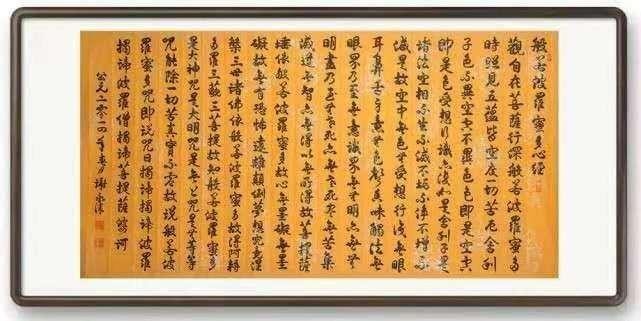 般若波羅蜜多心經
觀自在菩薩行深般若波羅蜜多
時照見五蘊皆空度一切苦厄舍利
子色不異空空不異色色即是空空
即是色受想行識亦復如是舍利子是
諸法空相不生不滅不垢不淨不增不
減是故空中無色無受想行識無眼
耳鼻舌身意無色聲香味觸法無
眼界乃至無意識界無無明亦無無
明盡乃至無老死亦無老死盡無苦集
滅道無智亦無得以無所得故菩提薩
埵依般若波羅蜜多故心無罣礙無罣
礙故無有恐怖遠離顛倒夢想究竟涅
槃三世諸佛依般若波羅蜜多故得阿耨
多羅三藐三菩提故知般若波羅蜜多
是大神咒是大明咒是無上咒是無等等
咒能除一切苦真實不虛故說般若波
羅蜜多咒即說咒曰揭諦揭諦波羅
揭諦波羅僧揭諦菩提薩婆訶
公元二〇一四年春